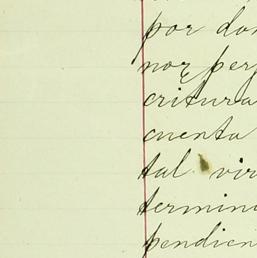 por don
nor per
critura
cuenta
tal vir
termin
pendien